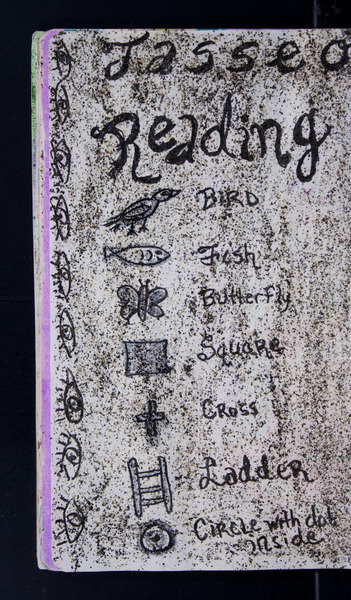 Tasseo
Reading
BIRD
Fish
Butterfly
Square
Cross
Ladder
Circle with dot
inside